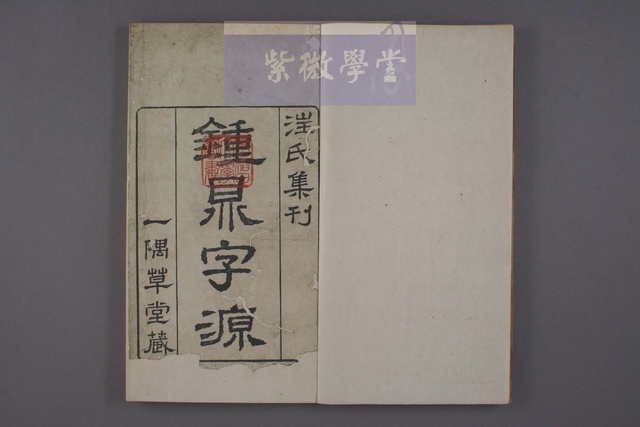 紫微學堂
汪氏集刊
鍾鼎字源
一隅草堂藏